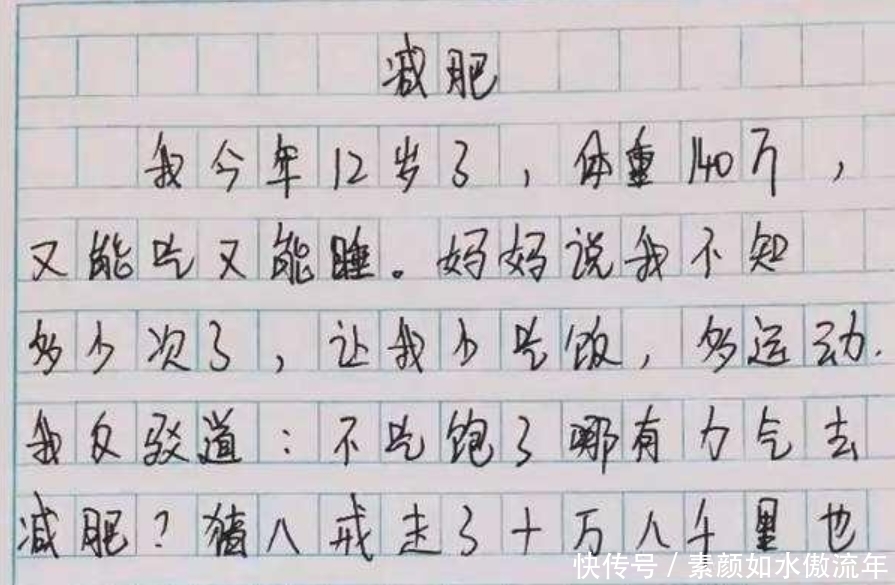 减肥
我今年12岁了，体重140斤，
又能吃又能睡。妈妈说我不知
多少次了，让我少吃饭，多运动.
我反驳道：不吃饱了哪有力气去
减肥？猪八戒走了十万八千里也
快传号 / 素颜如水傲流年